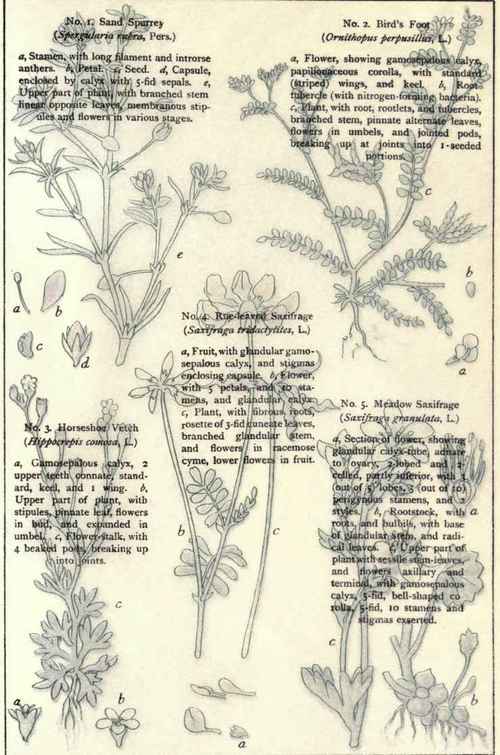 No. 1. Sand Spurrey
(Spergularia rubra, Pers.)
a, Stamen, with long filament and introrse
anthers. b, Petal. c, Seed. d, Capsule,
enclosed by calyx with 5-fid sepals. e,
Upper part of plant, with branched stem
linear opposite leaves, membranous stip-
ules and flowers in various stages.
No. 2. Bird's Foot
(Ornithopus perpusillus, L.)
a, Flower, showing gamosepalous calyx,
papilionaceous corolla, with standard
(striped) wings, and keel. b, Root
tubercle (with nitrogen-forming bacteria).
c, Plant, with root, rootlets, and tubercles,
branched stem, pinnate alternate leaves,
flowers in umbels, and jointed pods,
breaking up at joints into 1-seeded
portions.
c
e
a
b
b
c
d
a
No. 4. Rue-leaved Saxifrage
(Saxifraga tridactylites, L.)
a, Fruit, with glandular gamo-
sepalous calyx, and stigmas
enclosing capsule. b, Flower,
with 5 petals, and 10 sta-
mens, and glandular calyx.
c, Plant, with fibrous roots,
rosette of 3-fid cuneate leaves,
branched glandular stem,
and flowers in racemose
cyme, lower flowers in fruit.
No. 3. Horseshoe Vetch
(Hippocrepis comosa, L.)
a, Gamosepalous calyx, 2
upper teeth connate, stand-
ard, keel, and 1 wing. b,
Upper part of plant, with
stipules, pinnate leaf, flowers
in bud, and expanded in
umbel. c, Flower-stalk, with
4 beaked pods, breaking up
into joints.
No. 5. Meadow Saxifrage
(Saxifraga granulata, L.)
a, Section of flower, showing
glandular calyx-tube, adnate
to ovary, 2-lobed and 2-
celled, partly inferior, with 3
(out of 5) lobes, 3 (out of 10)
perigynous stamens, and 2
styles. b, Rootstock, with
roots, and bulbils, with base
of glandular stem, and radi-
cal leaves. c, Upper part of
plant with sessile stem-leaves,
and flowers axillary and
terminal, with gamosepalous
calyx, 5-fid, bell-shaped co-
rolla, 5-fid, 10 stamens and
stigmas exserted.
a
b
c
c
c
a
b
b
a